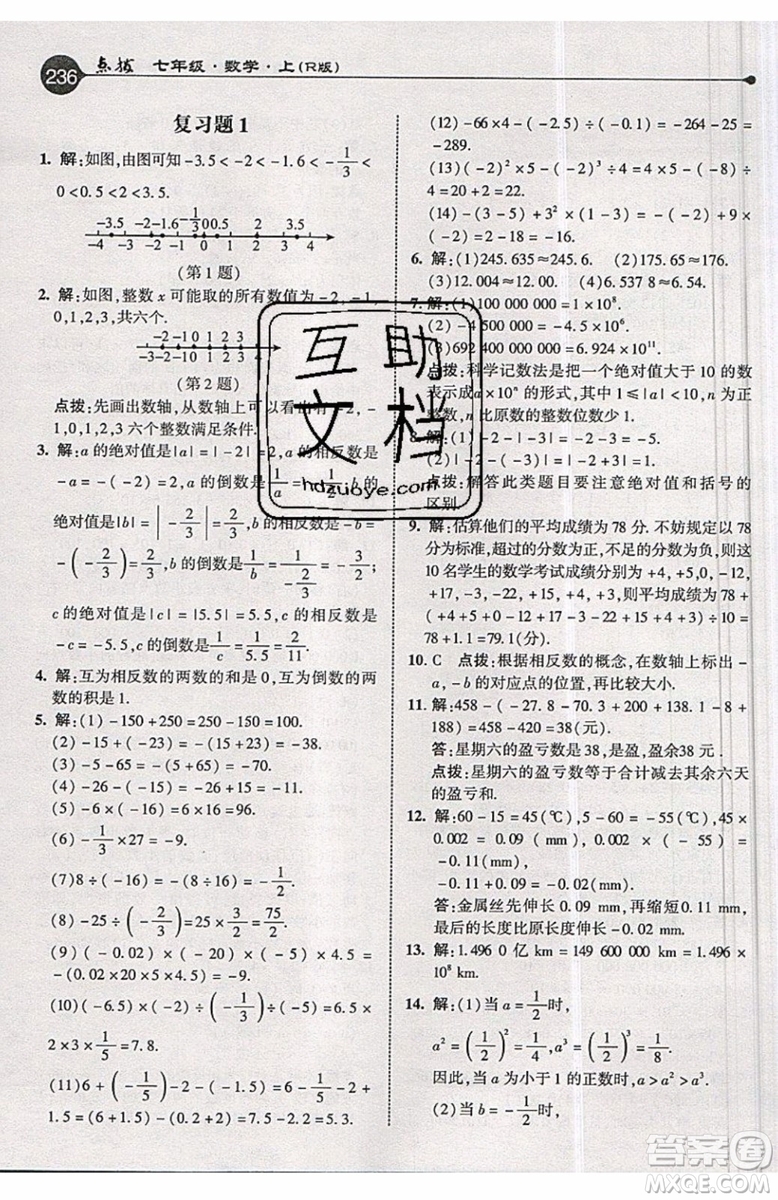 236 点拨 七年级·数学·上(R版)
复习题 1
1. 解:如图,由图可知 -3.5<-2<-1.6<-1/3<
<0<0.5<2<3.5.
-3.5 -2-1.6 -1/3 0 0.5 2 3.5
-4 -3 -2 -1 0 1 2 3 4
(第 1 题)
2. 解:如图,整数 x 可能取的所有数值为 -2,-1
0,1,2,3,共六个.
-2-1 0 1 2 3
-3-2-1 0 1 2 3 4
(第 2 题)
点拨:先画出数轴,从数轴上可以看出有 -2,-
0,1,2,3 六个整数满足条件.
3. 解:a 的绝对值是|a|=|-2|=2,a 的相反数是
-a=-(-2)=2,a 的倒数是 1/a=-1/2,b 的
绝对值是|b|=|-2/3|=2/3,b 的相反数是 -b=
-(-2/3)=2/3,b 的倒数是 1/b=1/(-2/3)=-3/2;
c 的绝对值是|c|=|5.5|=5.5,c 的相反数是
-c=-5.5,c 的倒数是 1/c=1/5.5=2/11.
4. 解:互为相反数的两数的和是 0,互为倒数的两
数的积是 1.
5. 解:(1)-150+250=250-150=100.
(2)-15+(-23)=-(15+23)=-38.
(3)-5-65=-(5+65)=-70.
(4)-26-(-15)=-26+15=-11.
(5)-6×(-16)=6×16=96.
(6)-1/3×27=-9.
(7)8÷(-16)=-(8÷16)=-1/2.
(8)-25÷(-2/3)=25×3/2=75/2.
(9)(-0.02)×(-20)×(-5)×4.5=
-(0.02×20×5×4.5)=-9.
(10)(-6.5)×(-2)÷(-1/3)÷(-5)=6.5×
2×3×1/5=7.8.
(11)6+(-1/5)-2-(-1.5)=6-1/5-2+
1.5=(6+1.5)-(0.2+2)=7.5-2.2=5.3.
(12)-66×4-(-2.5)÷(-0.1)=-264-25=
-289.
(13)(-2)²×5-(-2)³÷4=4×5-(-8)÷
4=20+2=22.
(14)-(3-5)+3²×(1-3)=-(-2)+9×
(-2)=2-18=-16.
6. 解:(1)245.635≈245.6. (2)175.65≈176.
(3)12.004≈12.00. (4)6.5378≈6.54.
7. 解:(1)100 000 000=1×10⁸.
(2)-4 500 000=-4.5×10⁶.
(3)692 400 000 000=6.924×10¹¹.
点拨:科学记数法是把一个绝对值大于 10 的数
表示成 a×10ⁿ 的形式,其中 1≤|a|<10,n 为正
整数,n 比原数的整数位数少 1.
8. 解:(1)-2-|-3|=-2-3=-5.
(2)|-2-(-3)|=|-2+3|=1.
点拨:解答此类题目要注意绝对值和括号的
区别.
9. 解:估算他们的平均成绩为 78 分. 不妨规定以 78
分为标准,超过的分数为正,不足的分数为负,则这
10 名学生的数学考试成绩分别为 +4,+5,0,-12,
+17,-3,-21,+15,+6,0,平均成绩为 78+
(+4+5+0-12+17-3-21+15+6+0)÷10=
78+1.1=79.1(分).
10. C 点拨:根据相反数的概念,在数轴上标出 -
a,-b 的对应点的位置,可得答案.
11. 解:458-(-27.8-70.3+200+138.1-8+
188)=458-420=38(元).
答:星期六的盈亏数是 38,是盈余38元.
点拨:星期六的盈亏数等于合计减去其余六天
的盈亏和.
12. 解:60-15=45(℃),5-60=-55(℃),45×
0.002=0.09(mm),0.002×(-55)=
-0.11(mm),
-0.11+0.09=-0.02(mm).
答:金属丝先伸长 0.09 mm,再缩短 0.11 mm,
最后的长度比原长度伸长 -0.02 mm.
13. 解:1.496 0 亿 km=149 600 000 km=1.496×
10⁸ km.
14. 解:(1)当 a=1/2时,
a²=(1/2)²=1/4,a³=(1/2)³=1/8.
因此,当 a 为小于 1 的正数时,a>a²>a³.
(2)当 b=-1/2时,
互助
文档
hdzuoye.com
答案圈